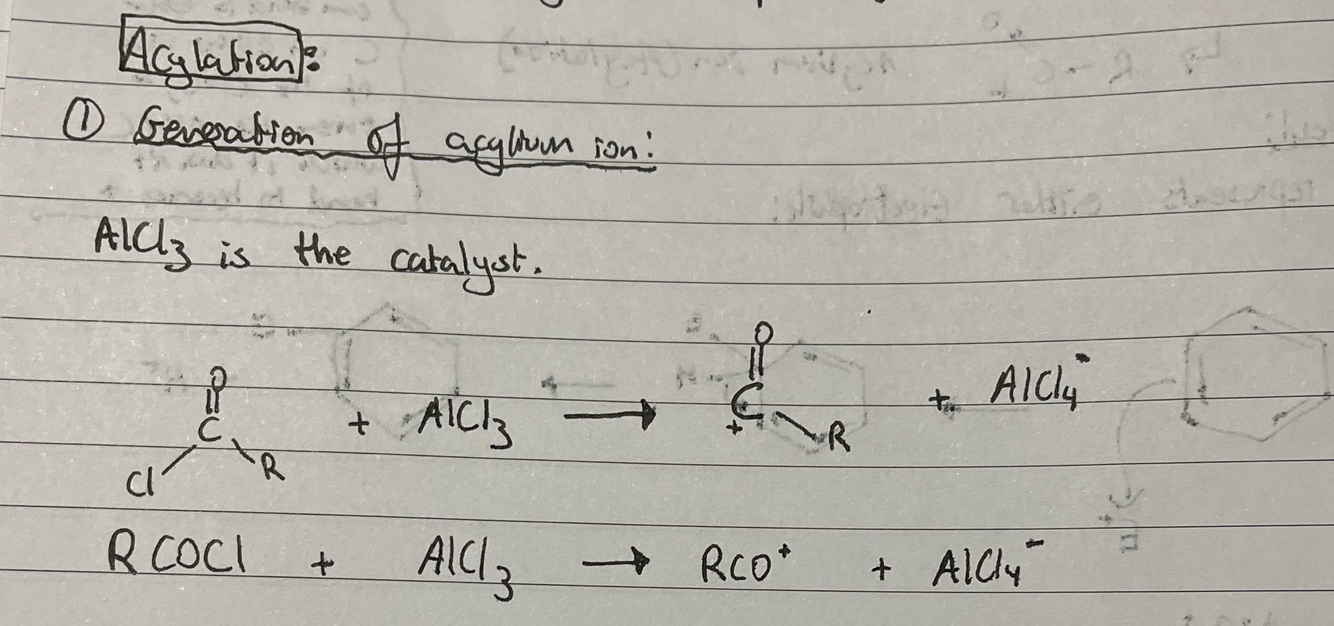 Acylation:
① Generation of acylium ion:
AlCl₃ is the catalyst.
O O
C + AlCl₃ → C + AlCl₄⁻
Cl R + R
RCOCl + AlCl₃ → RCO⁺ + AlCl₄⁻